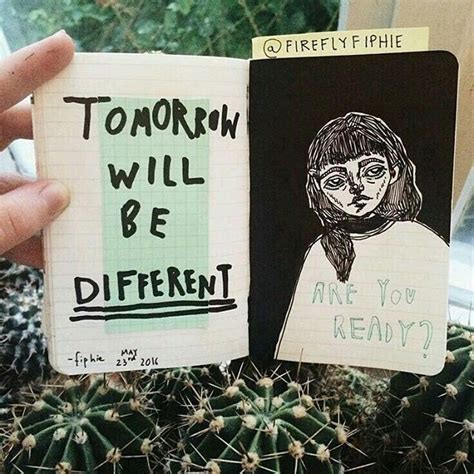 @FIREFLYFIPHIE
TOMORROW
WILL
BE
DIFFERENT
-fiphie MAY
23rd 2016
ARE YOU
READY?